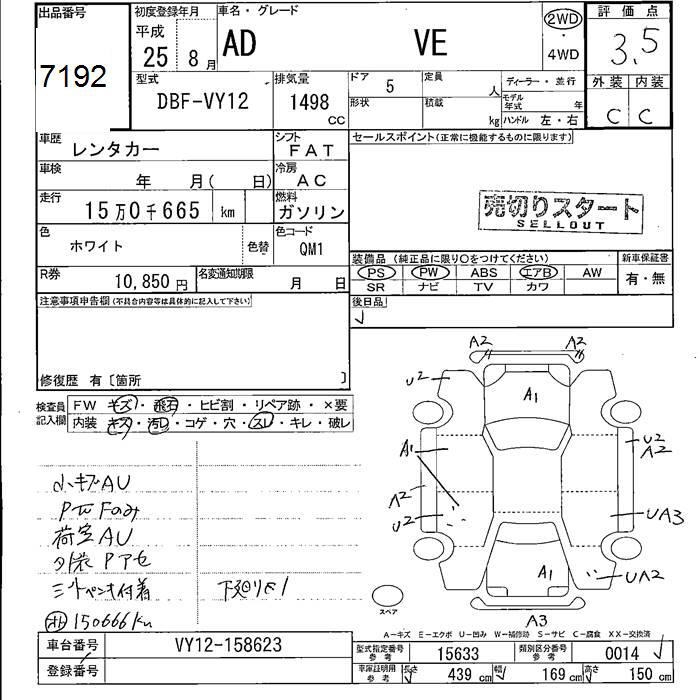 出品番号
7192
初度登録年月
平成
25年 8月
車名・グレード
AD VE
2WD
・
4WD
評価点
3.5
外装 内装
C C
型式
DBF-VY12
排気量
1498
CC
ドア 5
形状
定員 人
積載 kg
ディーラー・並行
モデル年式 年
ハンドル 左・右
車歴
レンタカー
シフト
FAT
車検
年 月( 日)
冷房
AC
走行
15万0千665 km
燃料
ガソリン
色
ホワイト
色替
色コード
QM1
R券
10,850円
名変通知期限
月 日
セールスポイント(正常に機能するものに限ります)
売切りスタート
SELLOUT
装備品(純正品に限り○をつけてください)
新車保証書
PS PW ABS エアB AW
有・無
SR ナビ TV カワ
後日品
注意事項申告欄(不具合内容等は具体的に記入して下さい)
修復歴 有〔箇所 〕
検査員
記入欄
FW キズ・飛石・ヒビ割・リペア跡・×要
内装 キズ・汚し・コゲ・穴・スレ・キレ・破レ
小キズAU
荷室AU
150666km
A2 A2
U2
A1
A1
U2
A2
A2
U2
UA3
A1
UA2
A3
スペア
A-キズ E-エクボ U-凹み W-補修跡 S-サビ C-腐食 XX-交換済
車台番号
VY12-158623
登録番号
型式指定番号
参考
15633
類別区分番号
参考
0014
車庫証明用
参考
長さ 439 cm
幅 169 cm
高さ 150 cm